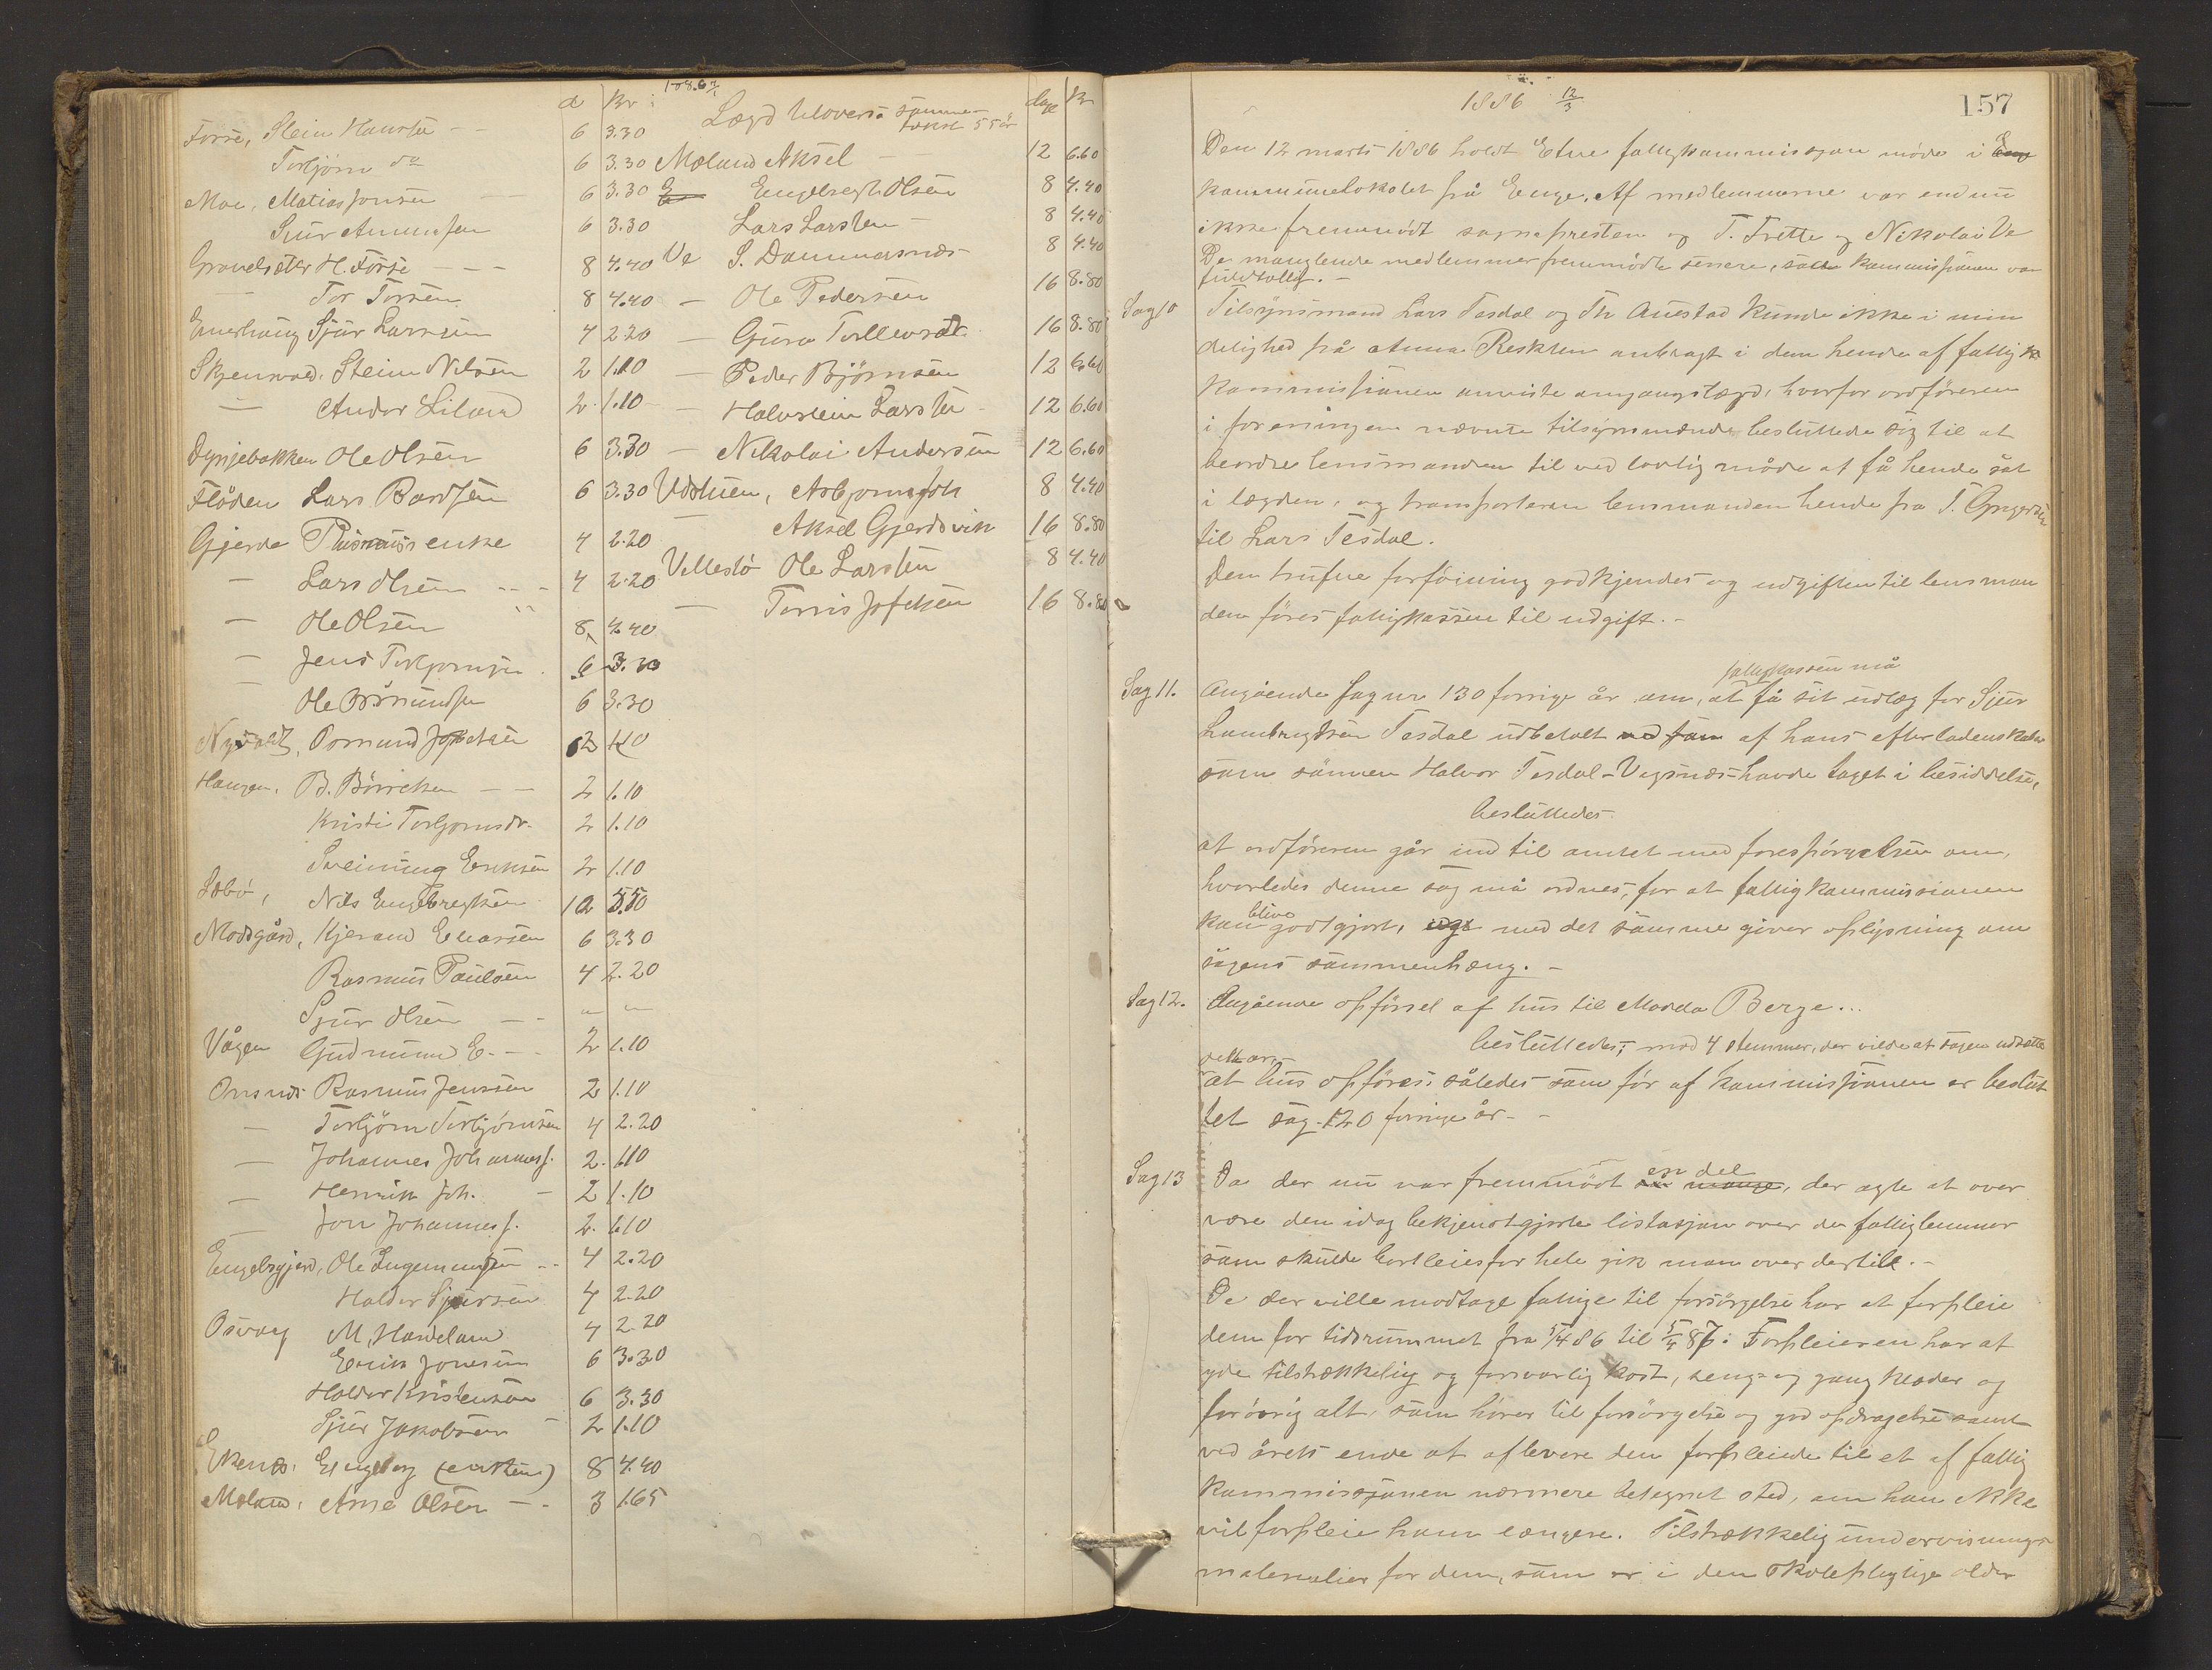 d Kr:
Forre, Stein Hansen - - 6 3.30
Torbjörn do 6 3.30
Moe, Matias Jonsen - - 6 3.30
Sjur Amundsen 6 3.30
Gravelsæter H. Forre - - - 8 4.40
Tor Torsen 8 4.40
Sjur Larsen 4 2.20
Stein Nilsen 2 1.10
— Andor Liland 2. 1.10
Dynjebakken Ole Olsen 6 3.30
Flöden Lars Bardsen 6 3.30
Gjerde Rasmus enke 4 2.20
— Lars Olsen - - - 4 2.20
— Ole Olsen 8 4.40
— Jens Torbjornsen 6 3.30
— Ole Osmundsen 6 3.30
Osmund 2 1.10
Haugen, B. Börretsen - - 2 1.10
Kristi Torbjornsdr. 2 1.10
Sveinung Eriksen 2 1.10
Sæbö, Nils Engebregtsen 10 5.50
Modsgård, Kjerand Eliassen 6 3.30
Rasmus Paulsen 4 2.20
Sjur Olsen - - " "
Vågen Gudmund E. - - 2 1.10
Osnes Rasmus Jenssen 2 1.10
— Torbjörn Torbjörnsen 4 2.20
— Johannes Johannesf. 2. 1.10
— Henrik Joh. - 2 1.10
— Jon Johannesf. 2. 1.10
Engelsgjerd, Ole Ingemundsen - - 4 2.20
Haldor Sjursen 4 2.20
Osvaag M. Hardeland 4 2.20
Erik Jonesen 6 3.30
Haldor Kristensen 6 3.30
Sjur Jakobsen - 2 1.10
Ekenes, Engeborg (enken) 8 4.40
Mæland, Arne Olsen - - 3 1.65
Lægd samme- dage Kr
takst 55 öre
Mæland Aksel - - 12 6.60
Engebregt Olsen 8 4.40
Lars Larsen - 8 4.40
Ve S. Dammasnes 8 4.40
— Ole Pedersen 16 8.80
— Guro Tollevsdtr 16 8.80
— Peder Björnsen 12 6.60
— Halvstein Larsen - 12 6.60
— Nikolai Andersen 12 6.60
Asbjorn 8 4.40
— Aksel Gjerdsvik 16 8.80
Vellestö Ole Larsen 8 4.40
— Torris Josefsen 16 8.80
1886 12/3
157
Den 12 marts 1886 holdt Etne fattigkommissjon möde i Eng
kommunelokalet på Enge. Af medlemmerne var endnu
ikke fremmödt sognepresten og T. Frette og Nikolai Ve
De manglende medlemmer fremmödte senere, så kommissionen var
fuldtallig. -
Sag 10 Tilsynsmand Lars Tesdal og Th Austad kunde ikke i min
delighed få Anna Reskten anbragt i dem hende af fattig
kommissionen anviste omgangslægd, hvorfor ordföreren
i foreningen nævnte tilsynsmænd besluttede sig til at
beordre lensmanden til ved lovlig måde at få hende sat
i lægden, og transporteren lensmanden hende fra T.
til Lars Tesdal.
Den trufne forföining godkjendes og udgiften til lensman
den föres fattigkassen til udgift. -
Sag 11. Angående sag nr 130 forrige år om, at fattigkassen må få sit udlæg for Sjur
Lambregtsen Tesdal udbetalt af hans efterladenskaber
som sönnen Halvor Tesdal-Vigsnes havde taget i besiddelse,
besluttedes
at ordföreren går ind til amtet med forespörgelsen om,
hvorledes denne sag må ordnes, for at fattigkommissionen
kan blive godtgjort, og med det samme giver oplysning om
sagens sammenhæng. -
Sag 12. Angående opförsel af hus til Marta Berge...
besluttedes; mod 4 stemmer, der vilde at sagen udsættes
dette år
at hus opföres således som för af kommissionen er beslut
tet sag 120 forrige år - -
Sag 13 Da der nu var fremmödt så mange en del, der agte at over
være den idag bekjentgjorte listasjon over de fattiglemmer
som skulde bortleies for hele gik man over dertil. -
De der ville modtage fattige til forsörgelse har at forpleie
dem for tidsrummet fra 5/4 86 til 5/4 87: Forpleieren har at
yde tilstrækkelig og forsvarlig kost, seng- og gangklæder og
forövrig alt, som hörer til forsörgelse og god opdragelse samt
ved årets ende at aflevere den forpleiede til et af fattig
kommissjonen nærmere betegnet sted, om han ikke
vil forpleie ham længere. Tilstrækkelig undervisnings-
materialier for dem, som er i den skolepligtige alder